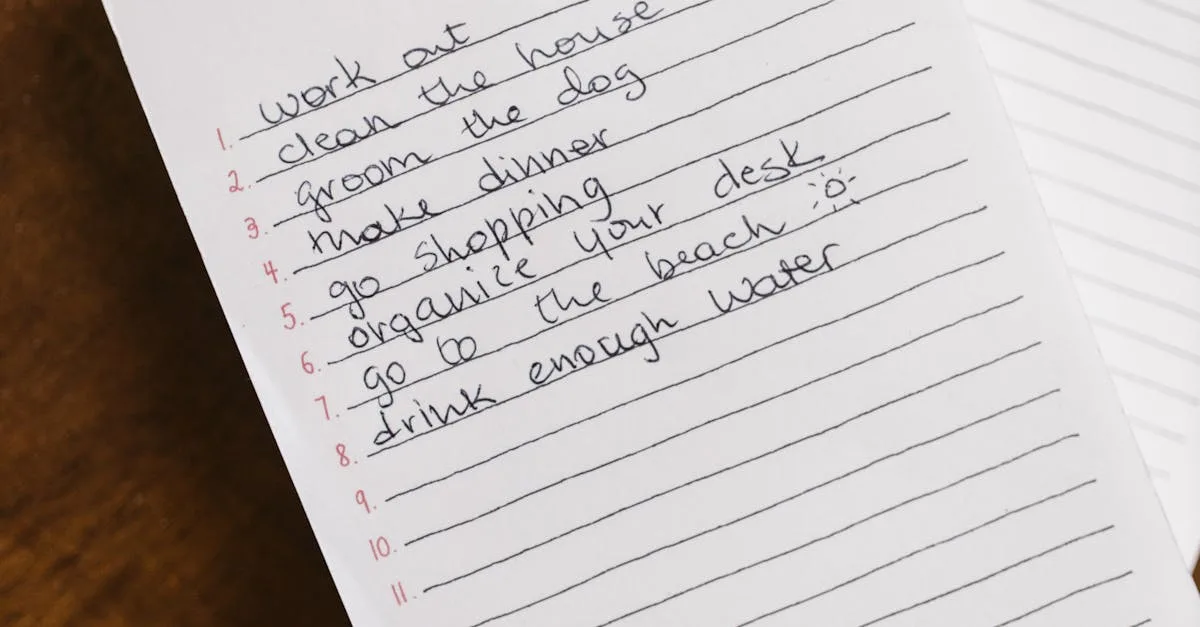 1. work out
2. clean the house
3. groom the dog
4. make dinner
5. go shopping
6. organize your desk
7. go to the beach
8. drink enough water
9.
10.
11.